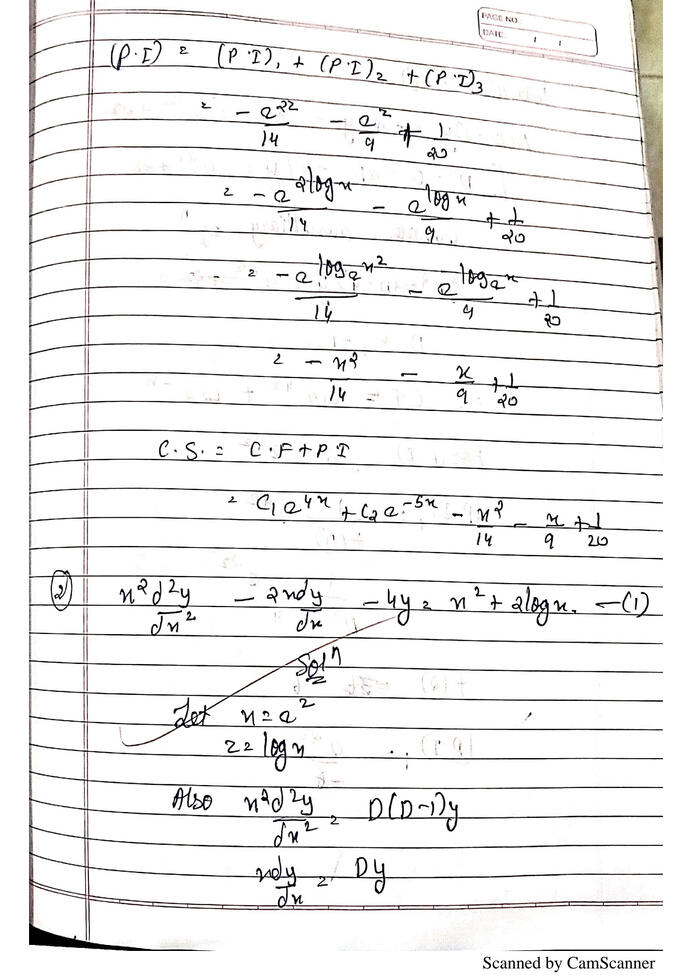 PAGE NO
DATE / /
(P.I) = (P.I)₁ + (P.I)₂ + (P.I)₃
= -e^2z/14 - e^z/9 + 1/20
= -e^2logx/14 - e^logx/9 + 1/20
= -e^logₑx²/14 - e^logₑx/9 + 1/20
= -x²/14 - x/9 + 1/20
C.S. = C.F + P.I
= C₁e^4x + C₂e^-5x - x²/14 - x/9 + 1/20
② x²d²y/dx² - 2xdy/dx - 4y = x² + 2logx. —(1)
Solⁿ
Let x = e^z
z = logx
Also x²d²y/dx² = D(D-1)y
xdy/dx = Dy
Scanned by CamScanner